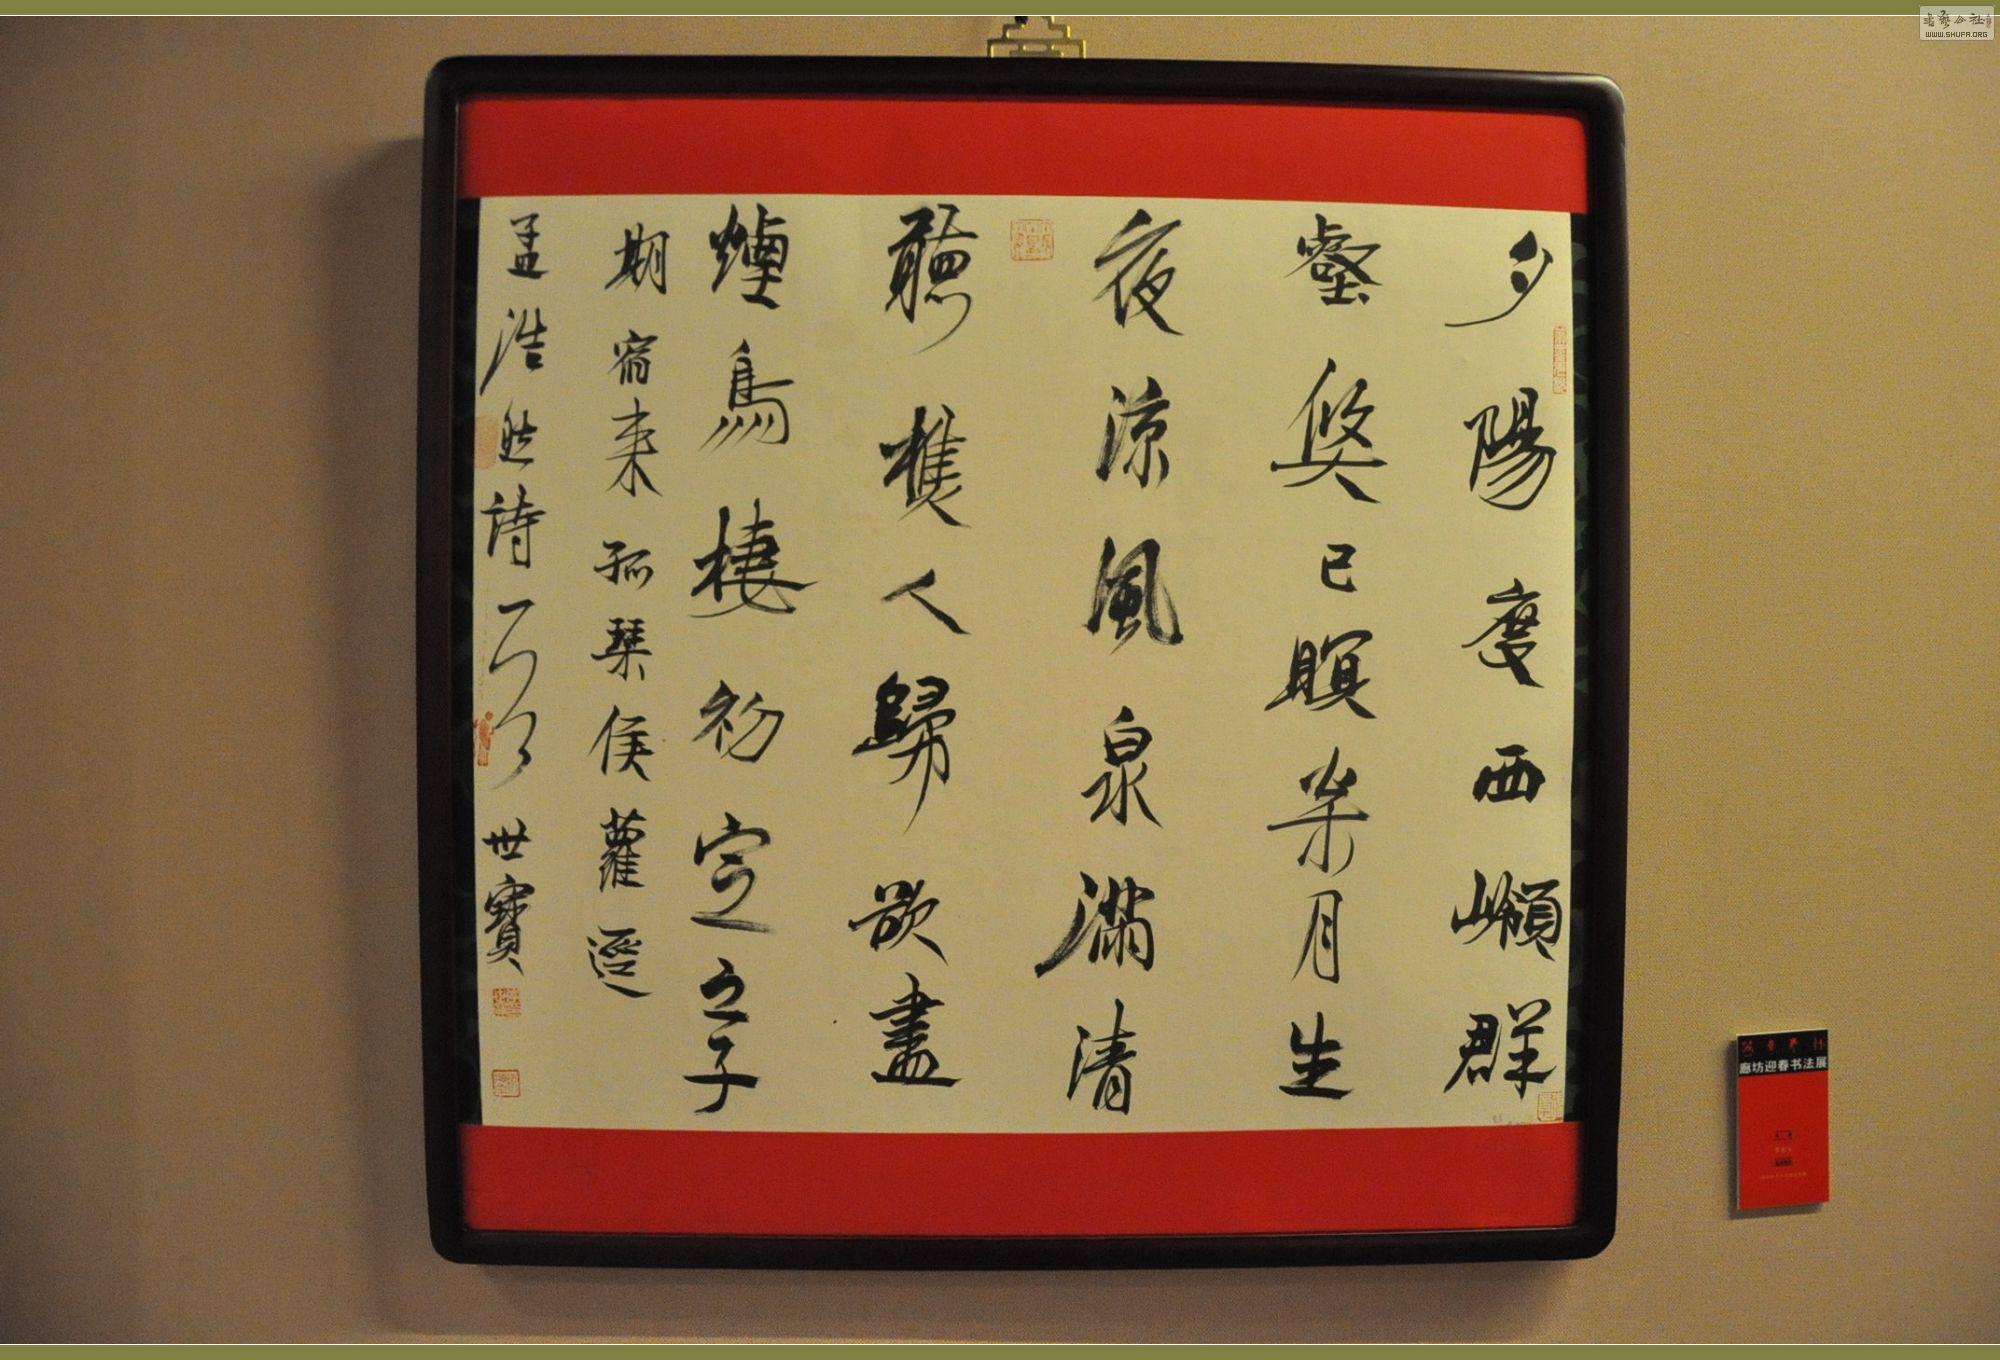 夕陽度西嶺群
壑倏已暝枀月生
夜涼風泉滿清
聽樵人歸欲盡
煙鳥棲初定之子
期宿來孤琴候蘿逕
孟浩然詩一首 世寶
廊坊迎春书法展
书艺公社
WWW.SHUFA.ORG